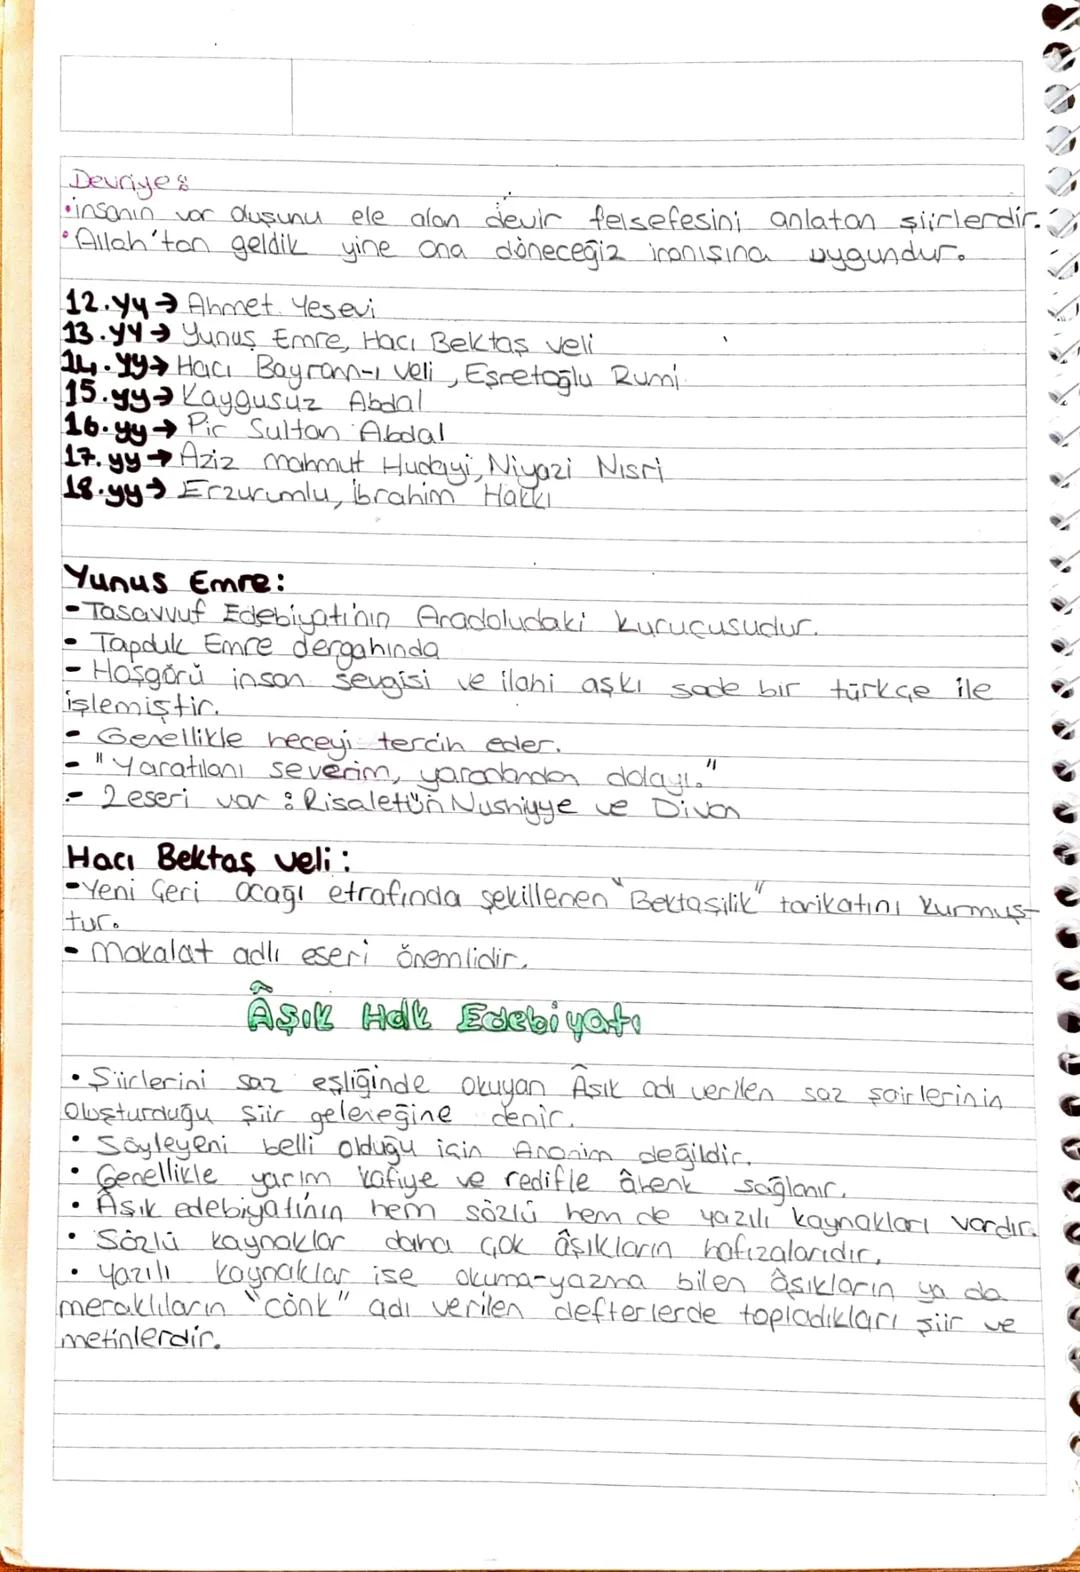 Devriye:
• insanın var oluşunu ele alan devir felsefesini anlatan şiirlerdir.
• Allah'tan geldik yine ona döneceğiz inanışına uygundur.
12.yy → Ahmet Yesevi
13.yy → Yunus Emre, Hacı Bektaş veli
14.yy → Hacı Bayram-ı veli, Eşrefoğlu Rumi
15.yy → Kaygusuz Abdal
16.yy → Pir Sultan Abdal
17.yy → Aziz mahmut Hudayi, Niyazi Nısri
18.yy → Erzurumlu, İbrahim Hakkı
Yunus Emre:
- Tasavvuf Edebiyatı'nın Anadoludaki kurucusudur.
- Tapduk Emre dergahında
- Hoşgörü insan sevgisi ve ilahi aşkı sade bir türkçe ile
işlemiştir.
- Genellikle heceyi tercih eder.
- "Yaratılanı severim, yaradandan dolayı."
- 2 eseri var : Risaletün Nushiyye ve Divan
Hacı Bektaş veli:
- Yeni Çeri ocağı etrafında şekillenen "Bektaşilik" tarikatını kurmuş-
tur.
- Makalat adlı eseri önemlidir.
Âşık Halk Edebiyatı
• Şiirlerini saz eşliğinde okuyan Âşık adı verilen saz şairlerinin
oluşturduğu şiir geleneğine denir.
• Söyleyeni belli olduğu için Anonim değildir.
• Genellikle yarım kafiye ve redifle âhenk sağlanır.
• Âşık edebiyatı'nın hem sözlü hem de yazılı kaynakları vardır.
• Sözlü kaynaklar daha çok âşıkların hafızalarıdır.
• Yazılı kaynaklar ise okuma-yazma bilen âşıkların ya da
meraklıların "cönk" adı verilen defterlerde topladıkları şiir ve
metinlerdir.